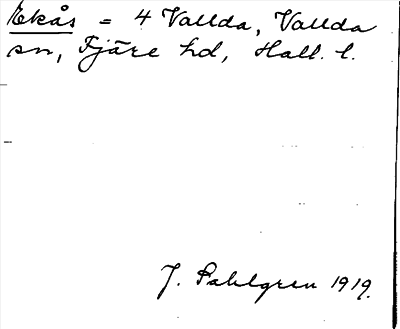 Ekås = 4 Vallda, Vallda
sn, Fjäre hd, Hall. l.
J. Sahlgren 1919.